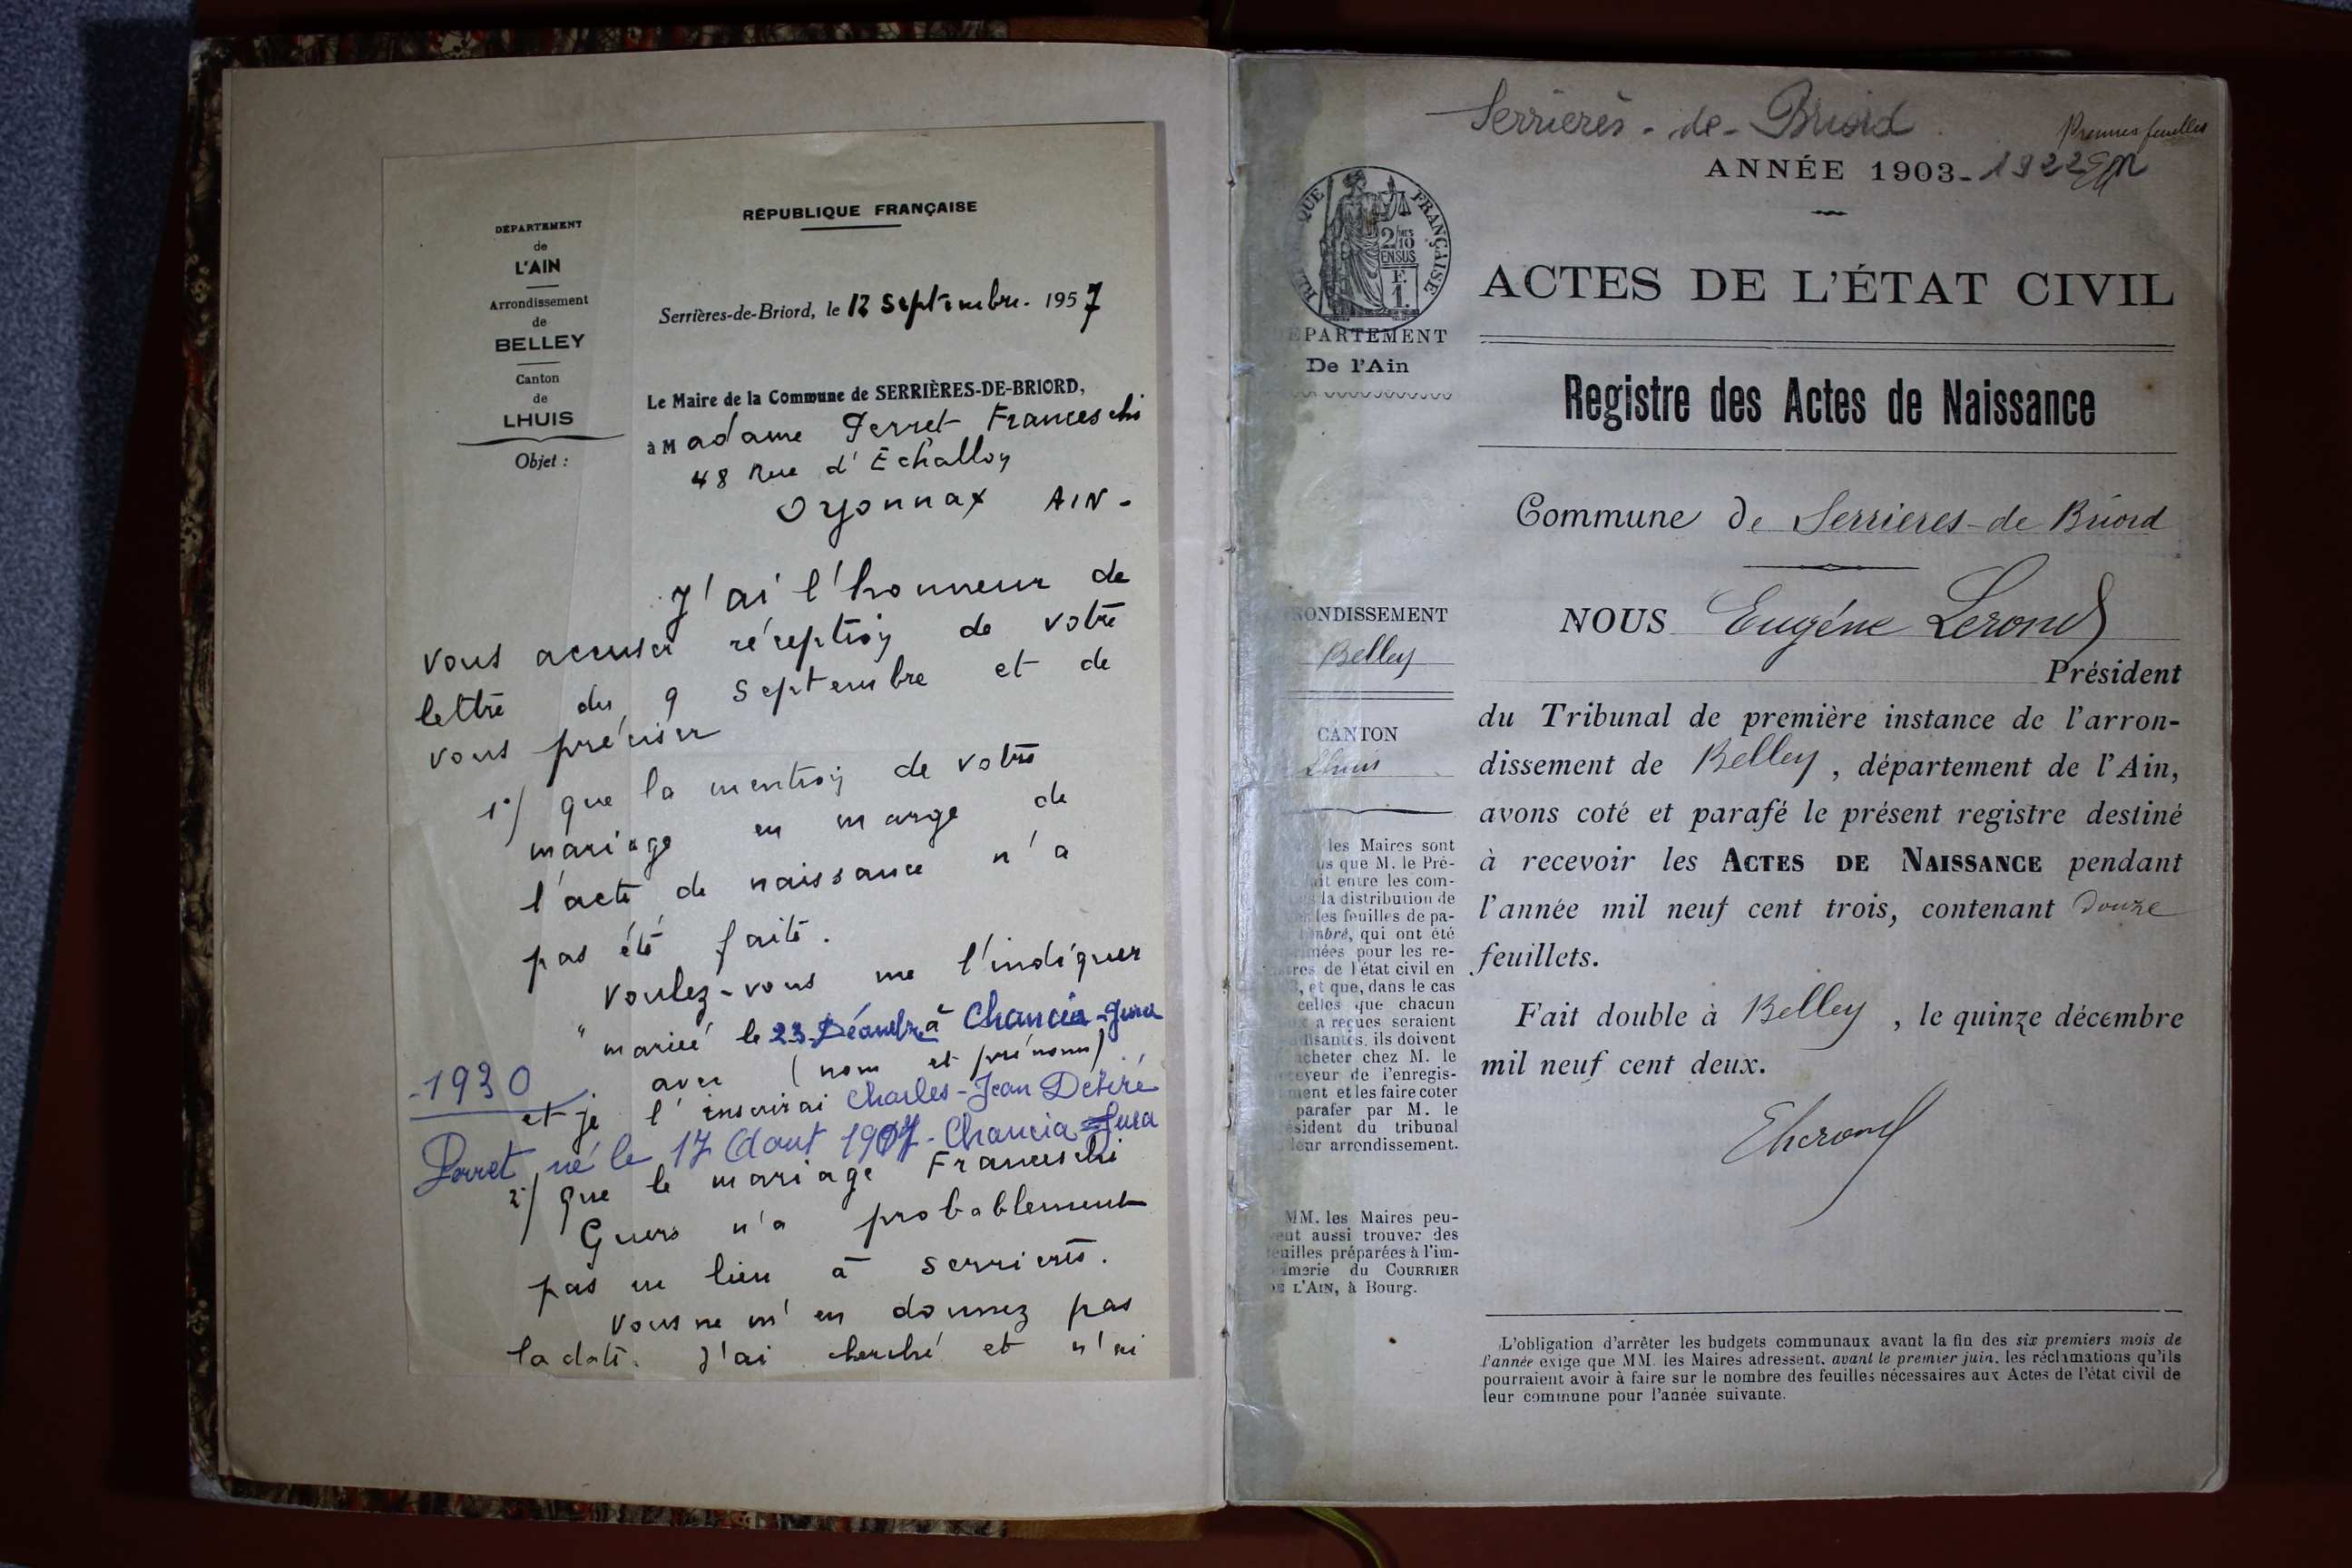 DÉPARTEMENT
de
L'AIN
Arrondissement
de
BELLEY
Canton
de
LHUIS
Objet :
RÉPUBLIQUE FRANÇAISE
Serrières-de-Briord, le 12 Septembre. 1957
Le Maire de la Commune de SERRIÈRES-DE-BRIORD,
à Madame Perret Franceschi
48 Rue d'Echallon
Oyonnax AIN-
J'ai l'honneur de
vous accuser réception de votre
lettre du 9 Septembre et de
vous préciser
1°/ que la mention de votre
mariage en marge de
l'acte de naissance n'a
pas été faite.
Voulez-vous me l'indiquer
" mariée le 23 Décembre à Chancia-Jura
-1930
avec (nom et prénoms)
et je l'inscrirai Charles-Jean Désiré
Perret, né le 17 Aout 1907- Chancia-Jura
2°/ que le mariage Franceschi
Guers n'a probablement
pas eu lieu à Serrières.
Vous ne m'en donnez pas
la date. J'ai cherché et n'ai
Serrières-de-Briord
Prennes feuilles
ANNÉE 1903-1922
RÉPUBLIQUE FRANÇAISE
2/10
EN SUS
F
1.
ÉPARTEMENT
De l'Ain
ACTES DE L'ÉTAT CIVIL
Registre des Actes de Naissance
Commune de Serrieres-de Briord
RONDISSEMENT
Belley
CANTON
Lhuis
NOUS Eugène Lerond
Président
du Tribunal de première instance de l'arron-
dissement de Belley, département de l'Ain,
avons coté et parafé le présent registre destiné
à recevoir les ACTES DE NAISSANCE pendant
l'année mil neuf cent trois, contenant douze
feuillets.
Fait double à Belley, le quinze décembre
mil neuf cent deux.
ELerond
les Maires sont
us que M. le Pré-
ait entre les com-
la distribution de
les feuilles de pa-
mbré, qui ont été
mées pour les re-
tres de l'état civil en
, et que, dans le cas
celles que chacun
a reçues seraient
ffisantes, ils doivent
acheter chez M. le
ceveur de l'enregis-
ment et les faire coter
parafer par M. le
ésident du tribunal
leur arrondissement.
MM. les Maires peu-
ent aussi trouver des
euilles préparées à l'im-
imerie du COURRIER
DE L'AIN, à Bourg.
L'obligation d'arrêter les budgets communaux avant la fin des six premiers mois de
l'année exige que MM. les Maires adressent, avant le premier juin, les réclamations qu'ils
pourraient avoir à faire sur le nombre des feuilles nécessaires aux Actes de l'état civil de
leur commune pour l'année suivante.